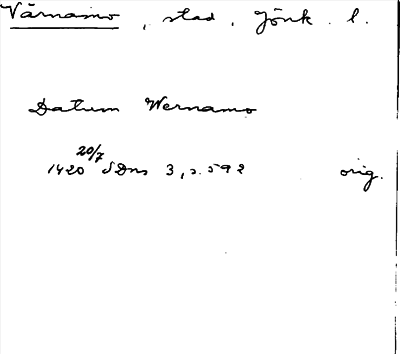 Värnamo, stad, Jönk. l.
Datum Wernamo
1420 20/7 SDns 3, s. 592 orig.